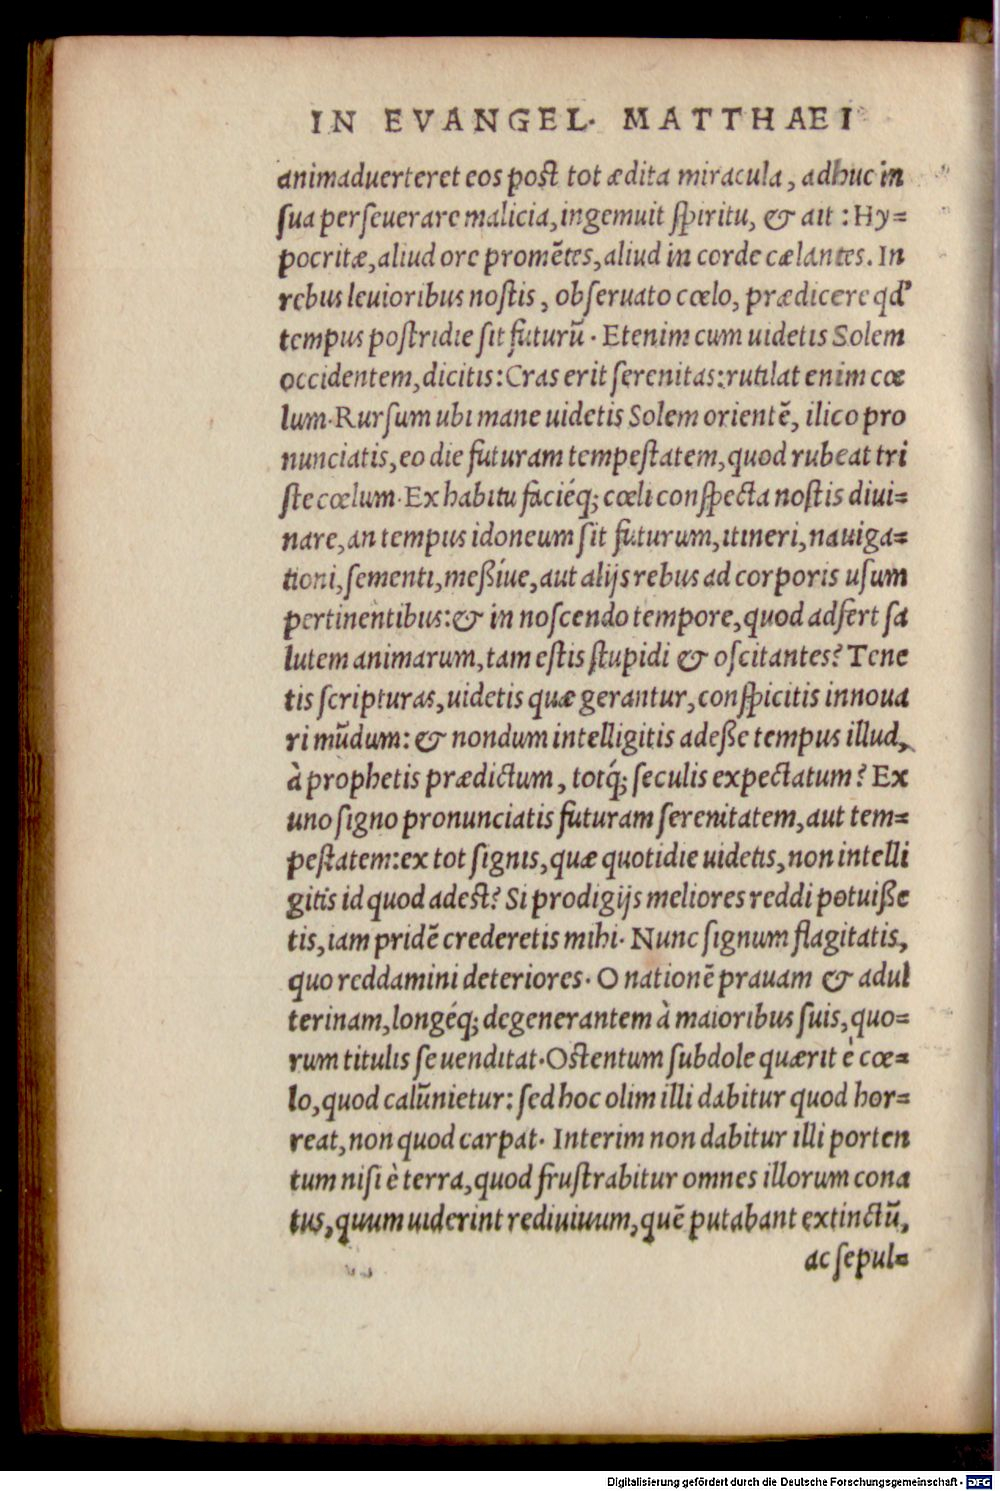 IN EVANGEL. MATTHAEI
animaduerteret eos post tot ædita miracula, adhuc in
ſua perſeuerare malicia, ingemuit ſpiritu, & ait : Hy=
pocritæ, aliud ore promẽtes, aliud in corde cælantes. In
rebus leuioribus noſtis, obſeruato cœlo, prædicere qd'
tempus poſtridie ſit futurũ. Etenim cum uidetis Solem
occidentem, dicitis: Cras erit ſerenitas: rutilat enim cœ
lum. Rurſum ubi mane uidetis Solem orientẽ, ilico pro
nunciatis, eo die futuram tempeſtatem, quod rubeat tri
ſte cœlum. Ex habitu faciéq; cœli conſpecta noſtis diui=
nare, an tempus idoneum ſit futurum, itineri, nauiga=
tioni, ſementi, meßíue, aut alijs rebus ad corporis uſum
pertinentibus: & in noſcendo tempore, quod adfert ſa
lutem animarum, tam eſtis ſtupidi & oſcitantes? Tene
tis ſcripturas, uidetis quæ gerantur, conſpicitis innoua
ri mũdum: & nondum intelligitis adeße tempus illud,
à prophetis prædictum, totq́; ſeculis expectatum? Ex
uno ſigno pronunciatis futuram ſerenitatem, aut tem=
peſtatem: ex tot ſignis, quæ quotidie uidetis, non intelli
gitis id quod adest? Si prodigijs meliores reddi potuiße
tis, iam pridẽ crederetis mihi. Nunc ſignum flagitatis,
quo reddamini deteriores. O nationẽ prauam & adul
terinam, longéq; degenerantem à maioribus ſuis, quo=
rum titulis ſe uenditat. Oſtentum ſubdole quærit è cœ=
lo, quod calũnietur: ſed hoc olim illi dabitur quod hor=
reat, non quod carpat. Interim non dabitur illi porten
tum niſi è terra, quod fruſtrabitur omnes illorum cona
tus, quum uiderint rediuiuum, quẽ putabant extinctũ,
ac ſepul=
Digitalisierung gefördert durch die Deutsche Forschungsgemeinschaft - DFG